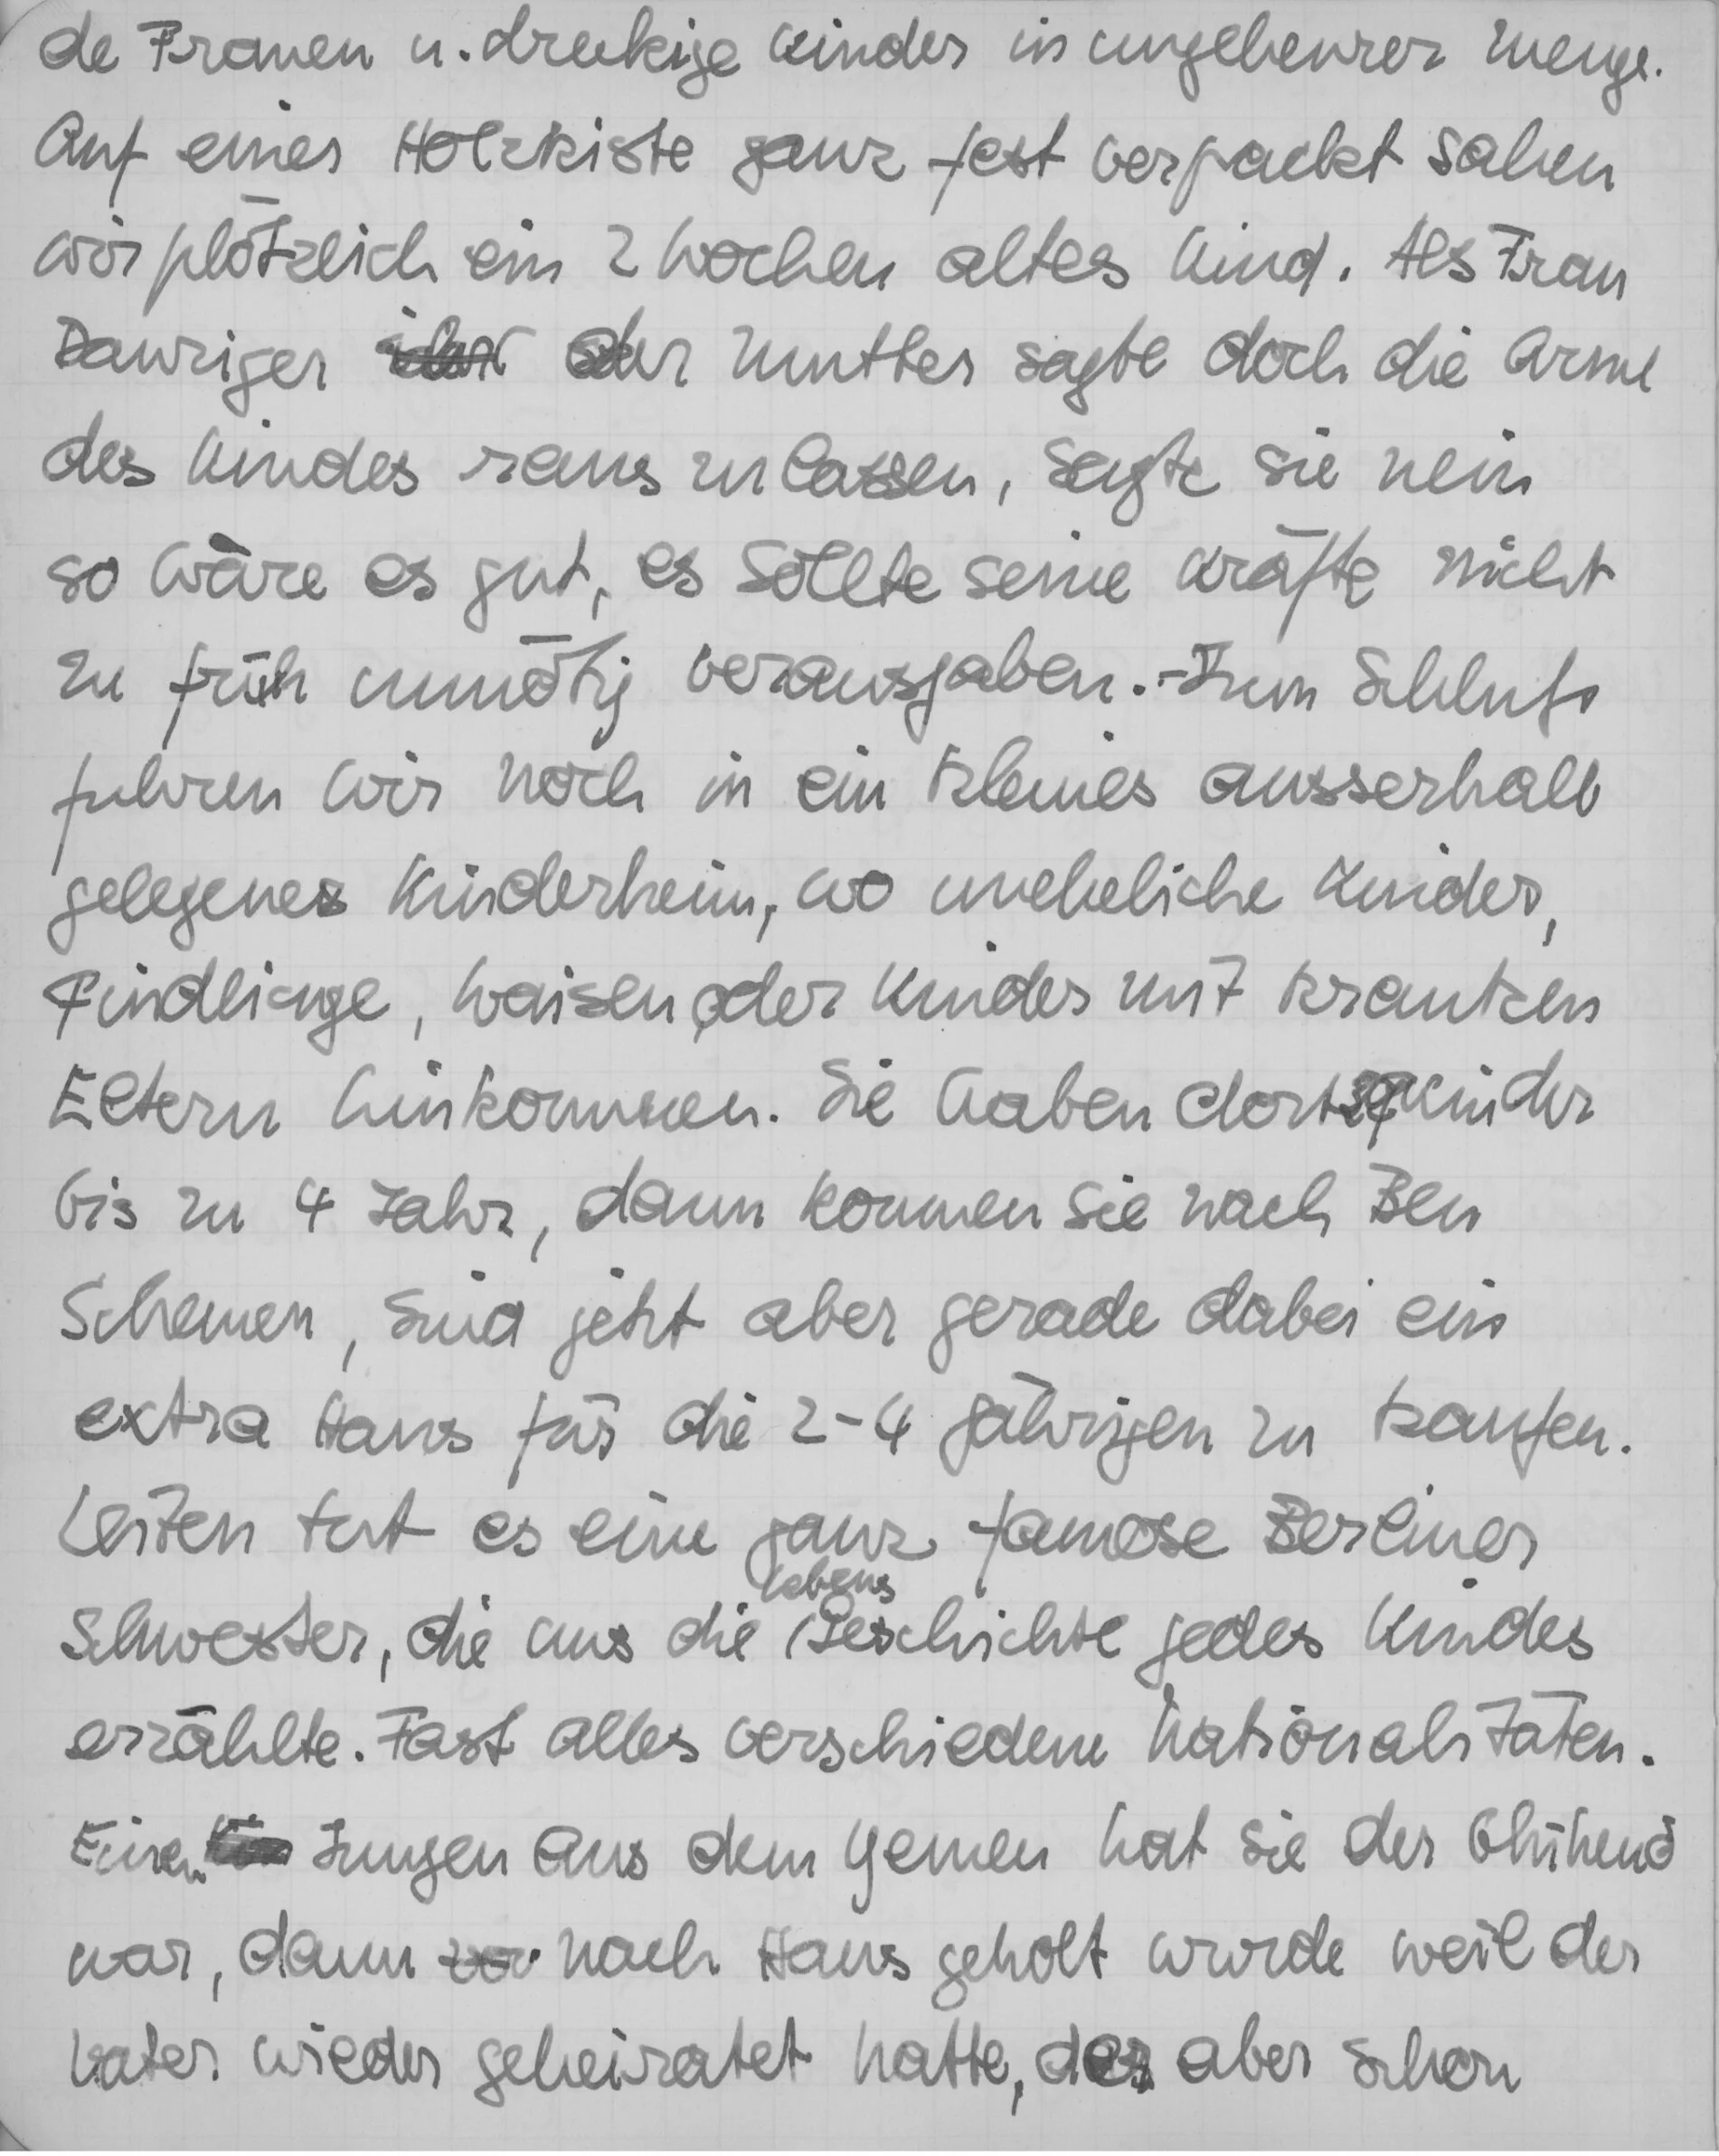 de Frauen u. dreckige Kinder in ungeheurer Menge.
Auf einer Holzkiste ganz fest verpackt sahen
wir plötzlich ein 2 Wochen altes Kind. Als Frau
Danziger der Mutter sagte doch die Arme
des Kindes raus zu lassen, sagte sie nein
so wäre es gut, es sollte seine Kräfte nicht
zu früh unnötig verausgaben. - Zum Schluß
fuhren wir noch in ein kleines ausserhalb
gelegenes Kinderheim, wo uneheliche Kinder,
Findlinge, Waisen oder Kinder mit kranken
Eltern hinkommen. Sie haben dort Kinder
bis zu 4 Jahr, dann kommen sie nach Ben
Schemen, sind jetzt aber gerade dabei ein
extra Haus für die 2-4 jährigen zu kaufen.
Leiten tut es eine ganz famose Berliner
Schwester, die uns die Lebens Geschichte jedes Kindes
erzählte. Fast alles verschiedene Nationalitäten.
Einen Jungen aus dem Yemen hat sie der blühend
war, dann nach Haus geholt wurde weil der
Vater wieder geheiratet hatte, der aber schon